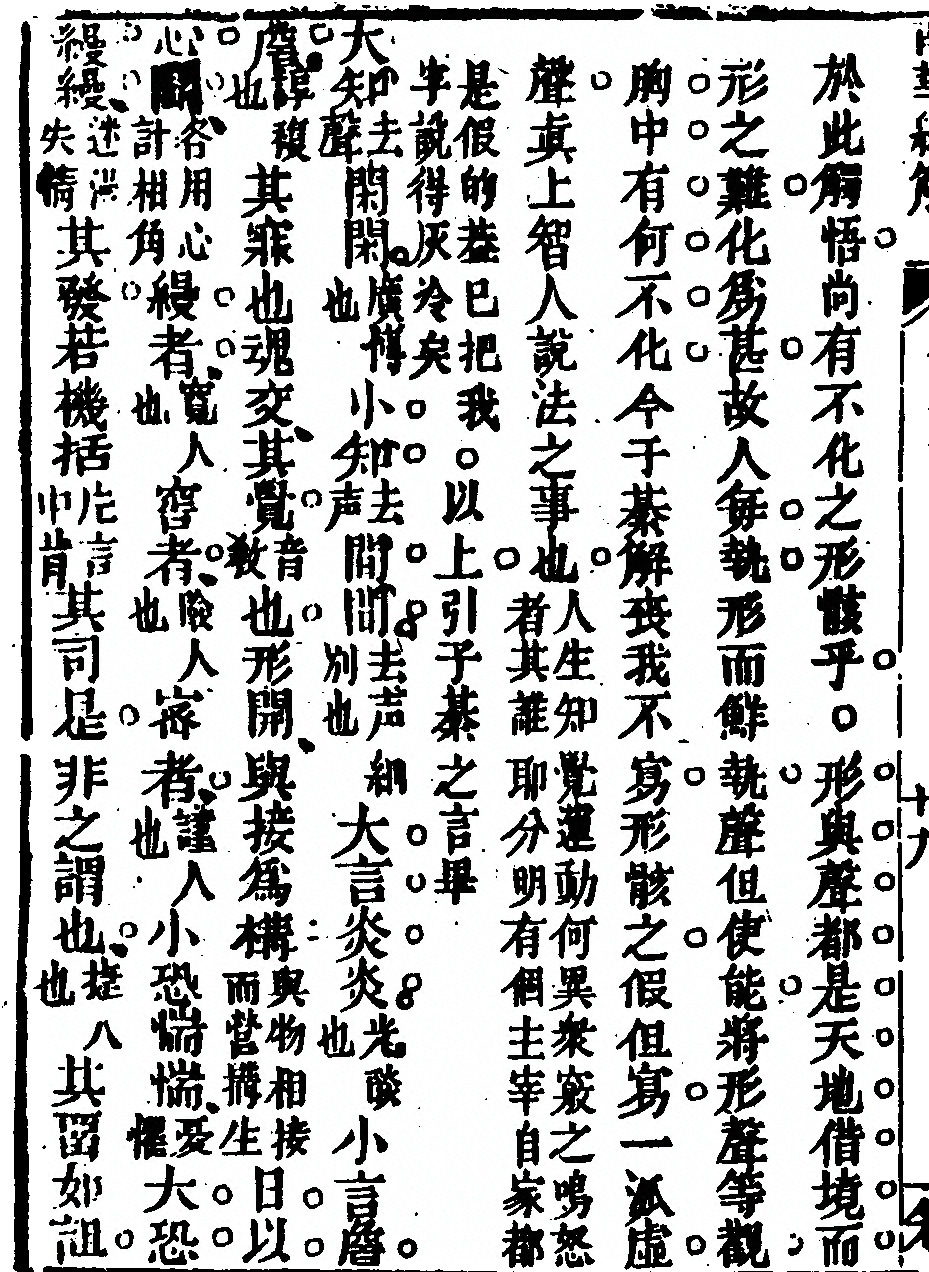 於此觸悟尚有不化之形骸乎。形與聲都是天地借境而
形之難化為甚故人每執形而鮮執聲但使能將形聲等觀
胸中有何不化今于綦解喪我不寫形骸之假但寫一派虛
聲真上智人說法之事也人生知覺運動何異衆竅之鳴怒
者其誰耶分明有個主宰自家都
是假的葢已把我
字說得灰冷矣。以上引子綦之言畢
大知去聲閑閑廣博也小知去声間間去声別也細大言炎炎光燄也小言詹
詹諄複也其寐也魂交其覺音教也形開與接為構與物相接而營搆生日以
心鬬各用心計相角縵者寬人也窖者險人也密者謹人也小恐惴惴憂懼大恐
縵縵迷漫失情其發若機括片言中肯其司是非之謂也捷人也其畱如詛
十九